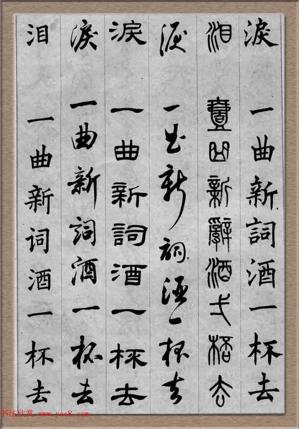 淚 一曲新詞酒一杯去
泪 壹曲新辭酒弌桮去
淚 一曲新詞酒一杯去
淚 一曲新詞酒一杯去
淚 一曲新詞酒一杯去
泪 一曲新词酒一杯去
书法欣赏 www.yac8.com